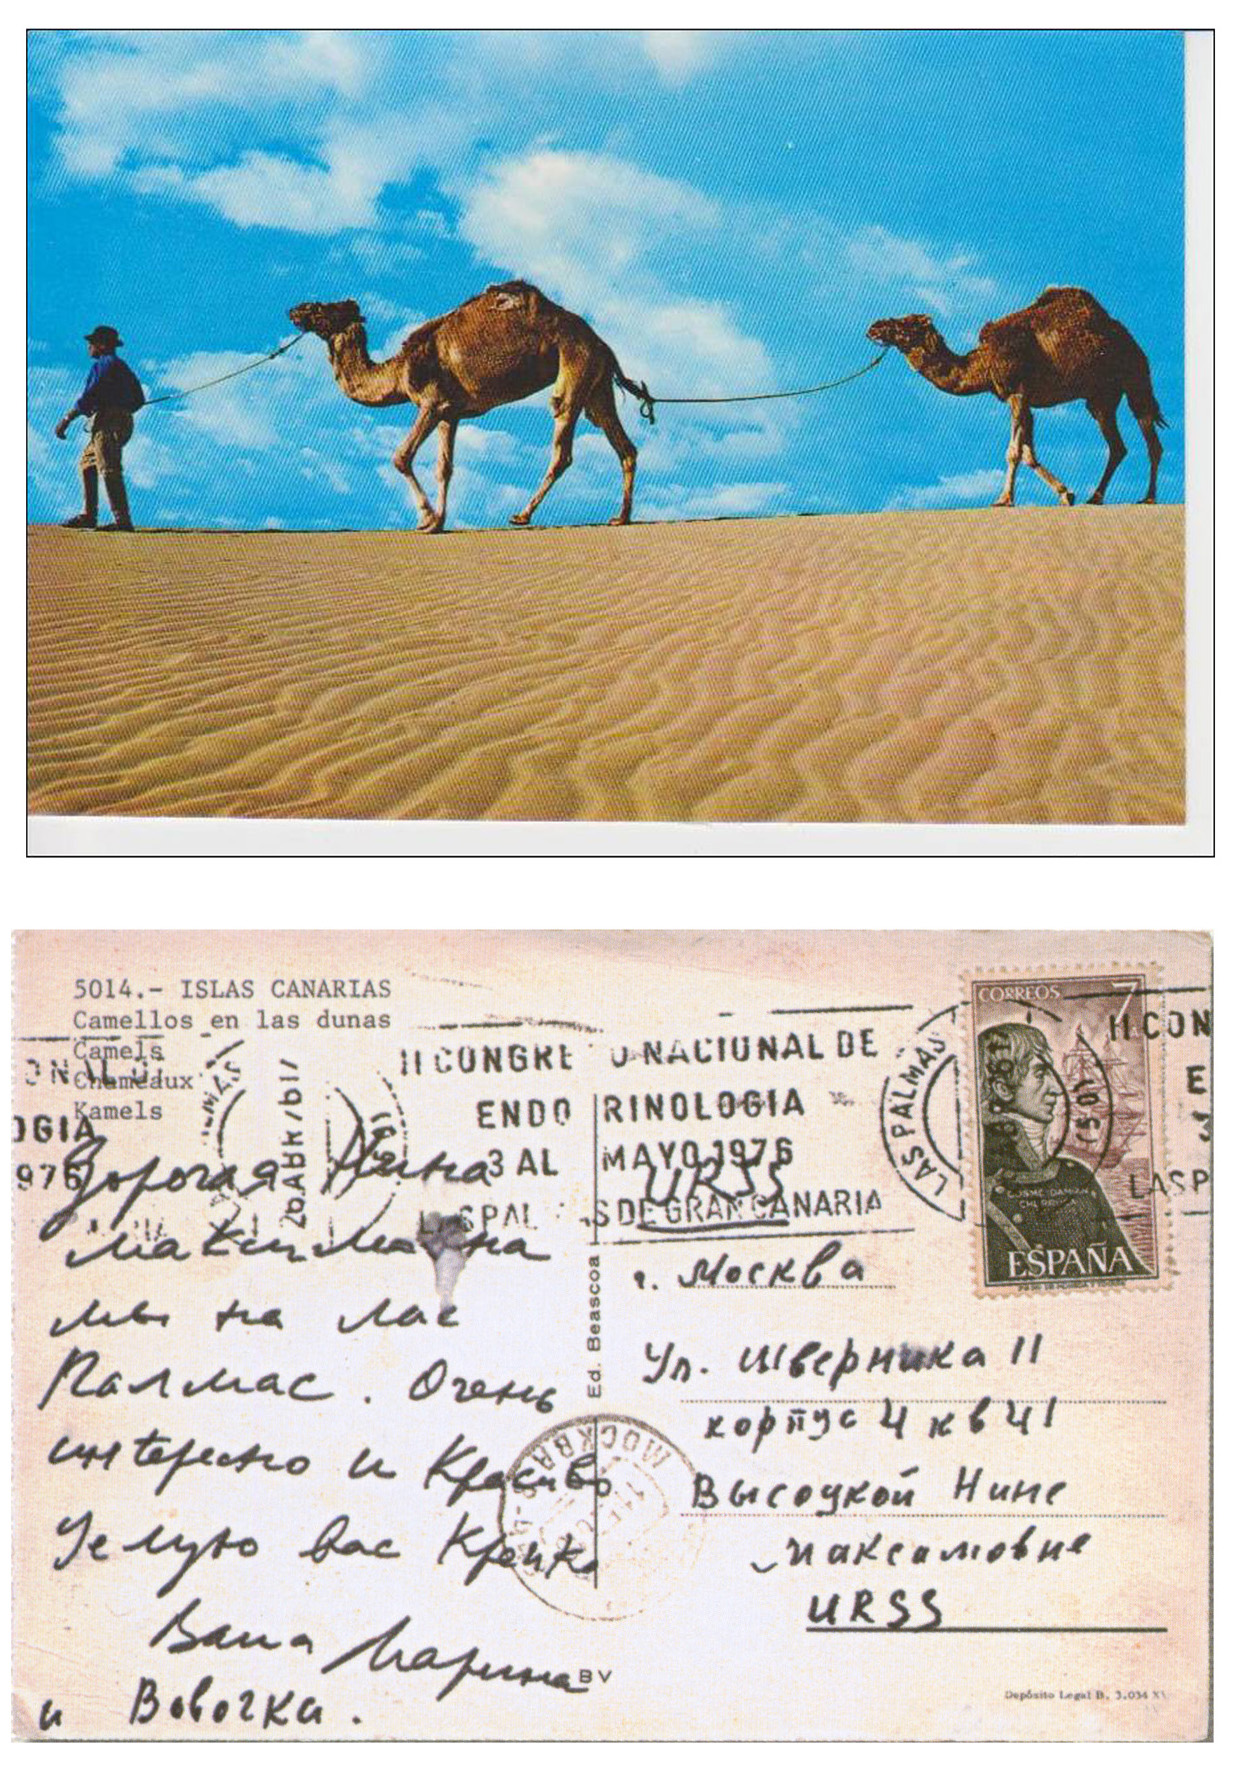 5014.- ISLAS CANARIAS
Camellos en las dunas
Camels
Chameaux
Kamels
II CONGRE O NACIONAL DE
ENDO RINOLOGIA
3 AL MAYO 1976
LAS PALMAS DE GRAN CANARIA
LAS PALMAS
CORREOS 7
COSME DAMIAN
CHURRUCA
ESPAÑA
II CON
E
3
LAS P
ONAL DE
OGIA
976
Дорогая Нина
Максимовна
мы на Лас
Палмас. Очень
интересно и Красиво
Целую вас Крепко
Ваша Марина
и Вовочка.
Ed. Beascoa
BV
МОСКВА
URSS
г. Москва
Ул. Шверника 11
корпус 4 кв 41
Высоцкой Нине
Максимовне
URSS
Depósito Legal B. 3.034